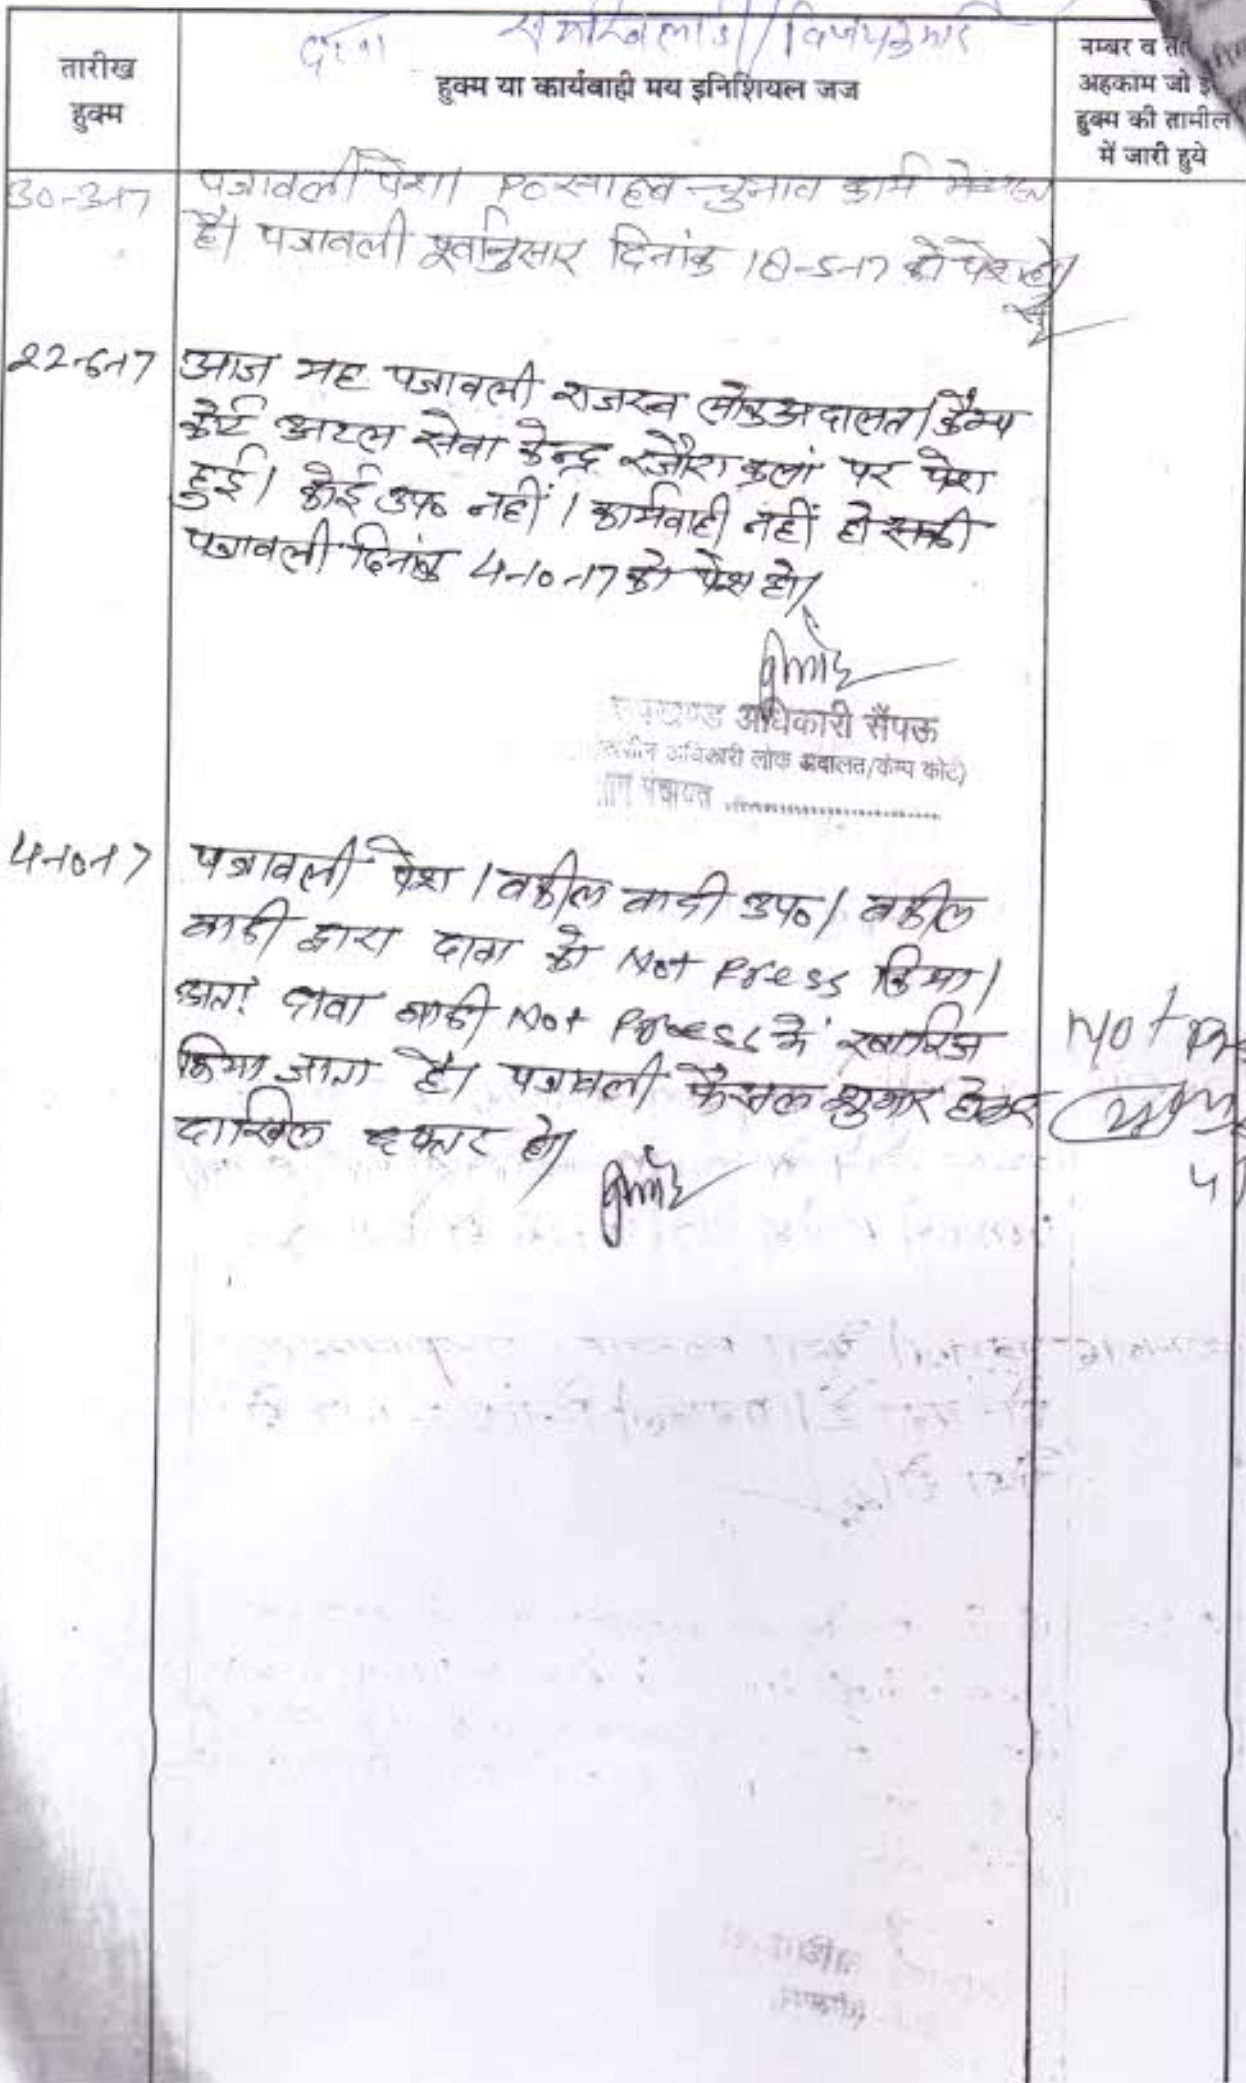 विजयकुमार
तारीख
हुक्म
हुक्म या कार्यवाही मय इनिशियल जज
नम्बर व
अहकाम जो
हुक्म की तामील
में जारी हुये
30-3-17 पत्रावली पेश। PO साहब चुनाव कार्य में
है। पत्रावली पूर्वानुसार दिनांक 18-5-17 को पेश हो।
22-6-17 आज यह पत्रावली राजस्व लोक अदालत/कैम्प
कोर्ट अटल सेवा केन्द्र रजौरा कलां पर पेश
हुई। कोई उप० नहीं। कार्यवाही नहीं हो सकी
पत्रावली दिनांक 4-10-17 को पेश हो।
उपखण्ड अधिकारी सैंपऊ
अधिकारी लोक अदालत/कैम्प कोर्ट)
पंचायत
4-10-17 पत्रावली पेश। वकील वादी उप०। वकील
वादी द्वारा दावा को Not Press किया।
अतः दावा वादी Not Press में खारिज
किया जाता है। पत्रावली फैसल शुमार होकर
दाखिल दफ्तर हो।
Not